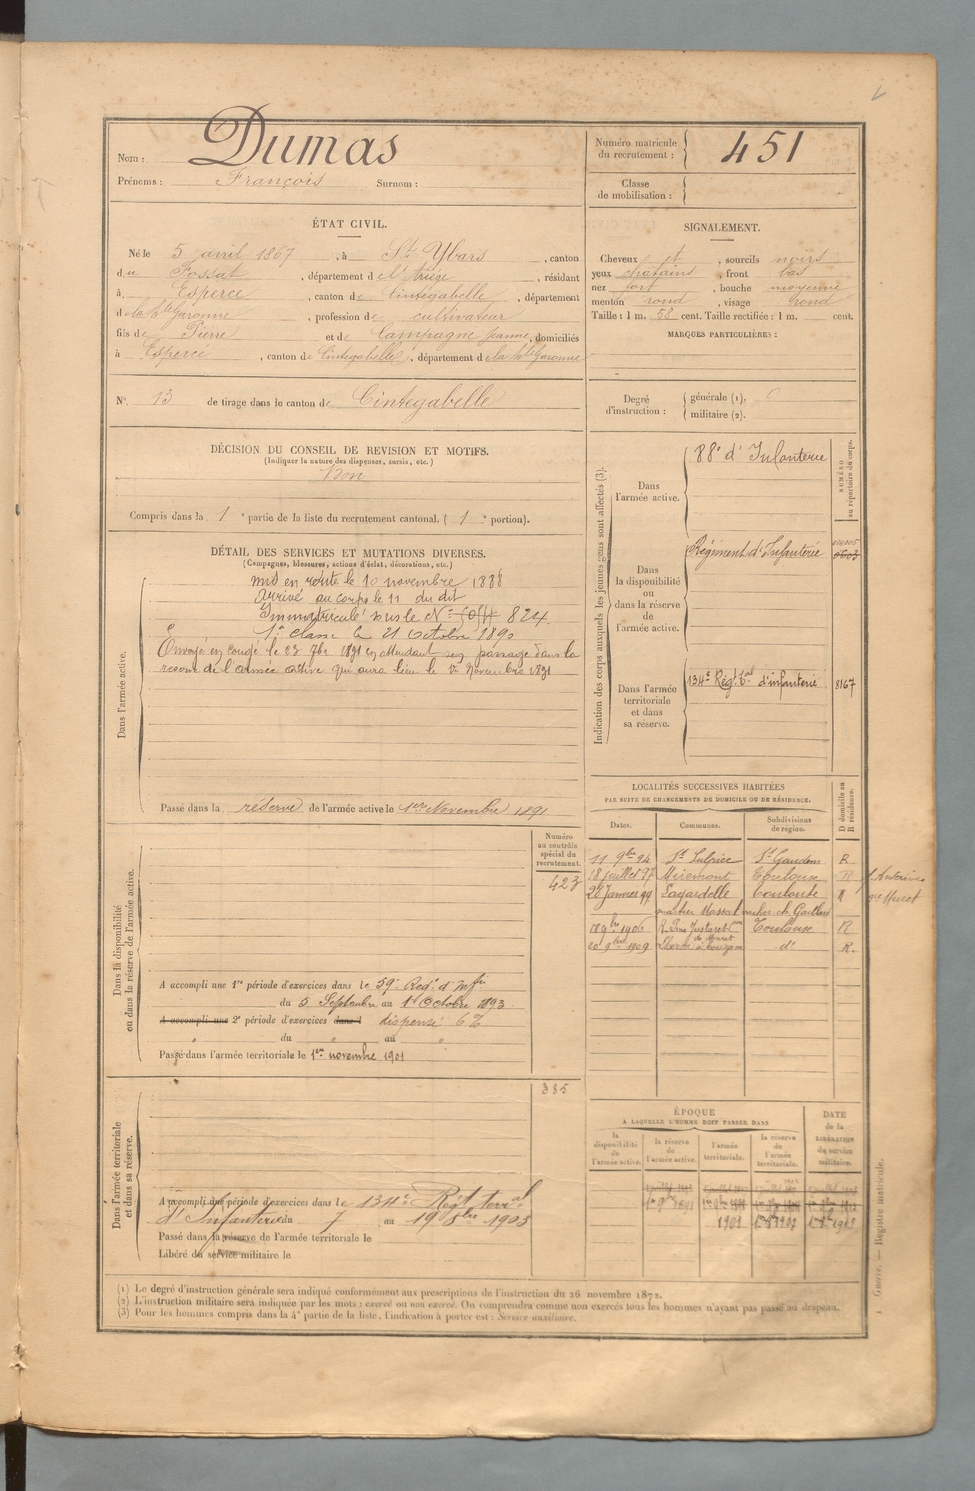 Nom : Dumas
Prénoms : François Surnom :
Numéro matricule
du recrutement : 451
Classe
de mobilisation :
ÉTAT CIVIL.
Né le 5 avril 1867, à St Ybars, canton
du Fossat, département de l'Ariège, résidant
à Esperce, canton de Cintegabelle, département
de la Hte Garonne, profession de cultivateur
fils de Pierre et de Campagne Jeanne, domiciliés
à Esperce, canton de Cintegabelle, département de la Hte Garonne
SIGNALEMENT.
Cheveux , sourcils noirs
yeux chatains, front bas
nez fort, bouche moyenne
menton rond, visage rond
Taille : 1 m. 58 cent. Taille rectifiée : 1 m. cent.
MARQUES PARTICULIÈRES :
N° 13 de tirage dans le canton de Cintegabelle
Degré
d'instruction :
générale (1).
militaire (2).
DÉCISION DU CONSEIL DE REVISION ET MOTIFS.
(Indiquer la nature des dispenses, sursis, etc.)
Bon
Compris dans la 1e partie de la liste du recrutement cantonal. (1e portion).
DÉTAIL DES SERVICES ET MUTATIONS DIVERSES.
(Campagnes, blessures, actions d'éclat, décorations, etc.)
Dans l'armée active.
Mis en route le 10 novembre 1888
Arrivé au corps le 11 du dit
Immatriculé sous le N° 824.
1e classe le 21 Octobre 1890
Envoyé en congé le 23 7bre 1891 en attendant son passage dans la
réserve de l'armée active qui aura lieu le 1er Novembre 1891
Passé dans la réserve de l'armée active le 1er Novembre 1891
Indication des corps auxquels les jeunes gens sont affectés (3).
NUMÉRO
au répertoire du corps.
Dans
l'armée active.
88e d'Infanterie
Dans
la disponibilité
ou
dans la réserve
de
l'armée active.
Régiment d'Infanterie
Dans l'armée
territoriale
et dans
sa réserve.
134e Régt Tal d'infanterie 8167
LOCALITÉS SUCCESSIVES HABITÉES
PAR SUITE DE CHANGEMENTS DE DOMICILE OU DE RÉSIDENCE.
Dates. Communes. Subdivisions
de région. D domicile ou
R résidence.
11 9bre 94 St Sulpice St Gaudens R
18 juillet 97 Miremont Toulouse R
28 Janvier 99 Lagardelle Toulouse R
18 9bre 1906 R. Pins Justaret Toulouse R
20 9bre 1909 do R.
Dans la disponibilité
ou dans la réserve de l'armée active.
Numéro
au contrôle
spécial du
recrutement.
423
A accompli une 1re période d'exercices dans le 59e Regt d'Infie
du 5 Septembre au 1er Octobre 1893.
A accompli une 2e période d'exercices dans l dispensé
du " au "
Passé dans l'armée territoriale le 1er novembre 1901
Dans l'armée territoriale
et dans sa réserve.
385
A accompli une période d'exercices dans le 134e Régt terral
d'Infanterie du 7 au 19 1903
Passé dans la réserve de l'armée territoriale le
Libéré du service militaire le
ÉPOQUE
À LAQUELLE L'HOMME DOIT PASSER DANS
la
disponibilité
de
l'armée active.
la réserve
de
l'armée active.
l'armée
territoriale.
la réserve
de
l'armée
territoriale.
DATE
de la
LIBÉRATION
du service
militaire.
1901
(1) Le degré d'instruction générale sera indiqué conformément aux prescriptions de l'instruction du 26 novembre 1872.
(2) L'instruction militaire sera indiquée par les mots : exercé ou non exercé. On comprendra comme non exercés tous les hommes n'ayant pas passé au drapeau.
(3) Pour les hommes compris dans la 4e partie de la liste, l'indication à porter est : Service auxiliaire.
Guerre. — Registre matricule.